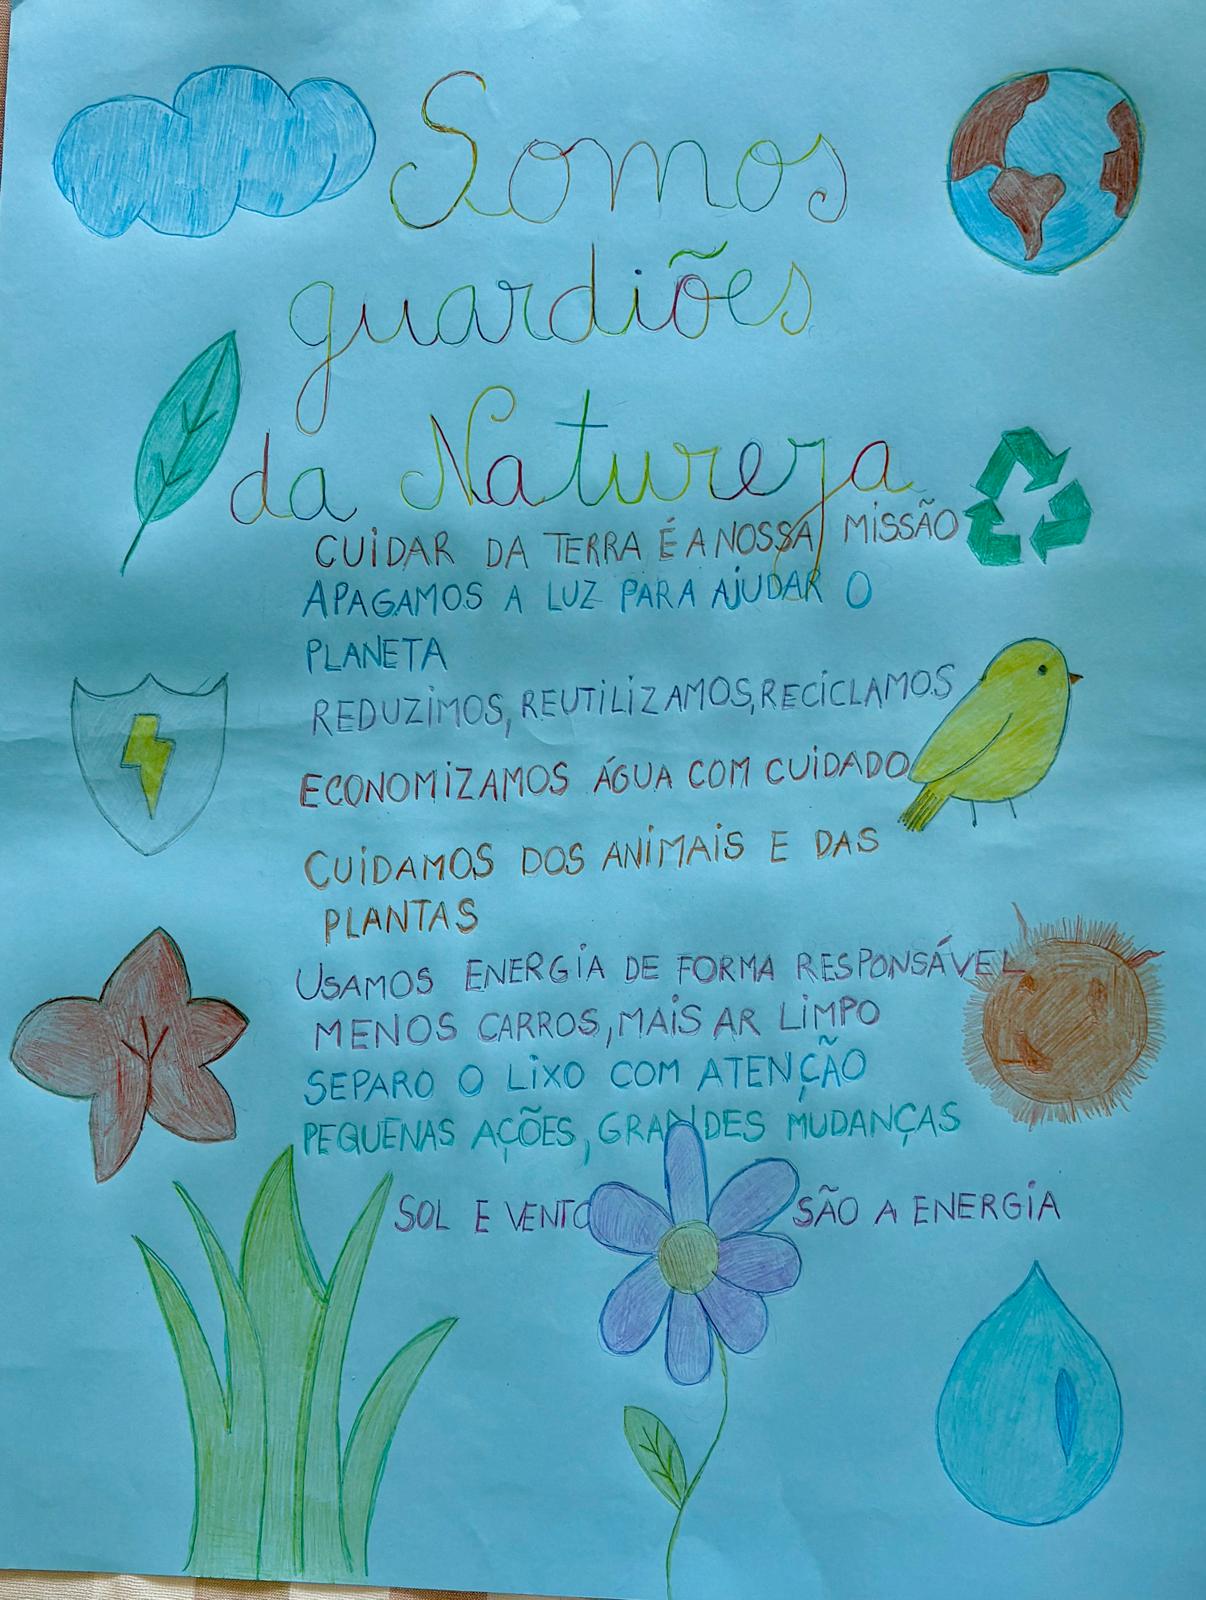 Somos
guardiões
da Natureza
CUIDAR DA TERRA É A NOSSA MISSÃO
APAGAMOS A LUZ PARA AJUDAR O
PLANETA
REDUZIMOS, REUTILIZAMOS, RECICLAMOS
ECONOMIZAMOS ÁGUA COM CUIDADO
CUIDAMOS DOS ANIMAIS E DAS
PLANTAS
USAMOS ENERGIA DE FORMA RESPONSÁVEL
MENOS CARROS, MAIS AR LIMPO
SEPARO O LIXO COM ATENÇÃO
PEQUENAS AÇÕES, GRANDES MUDANÇAS
SOL E VENTO SÃO A ENERGIA